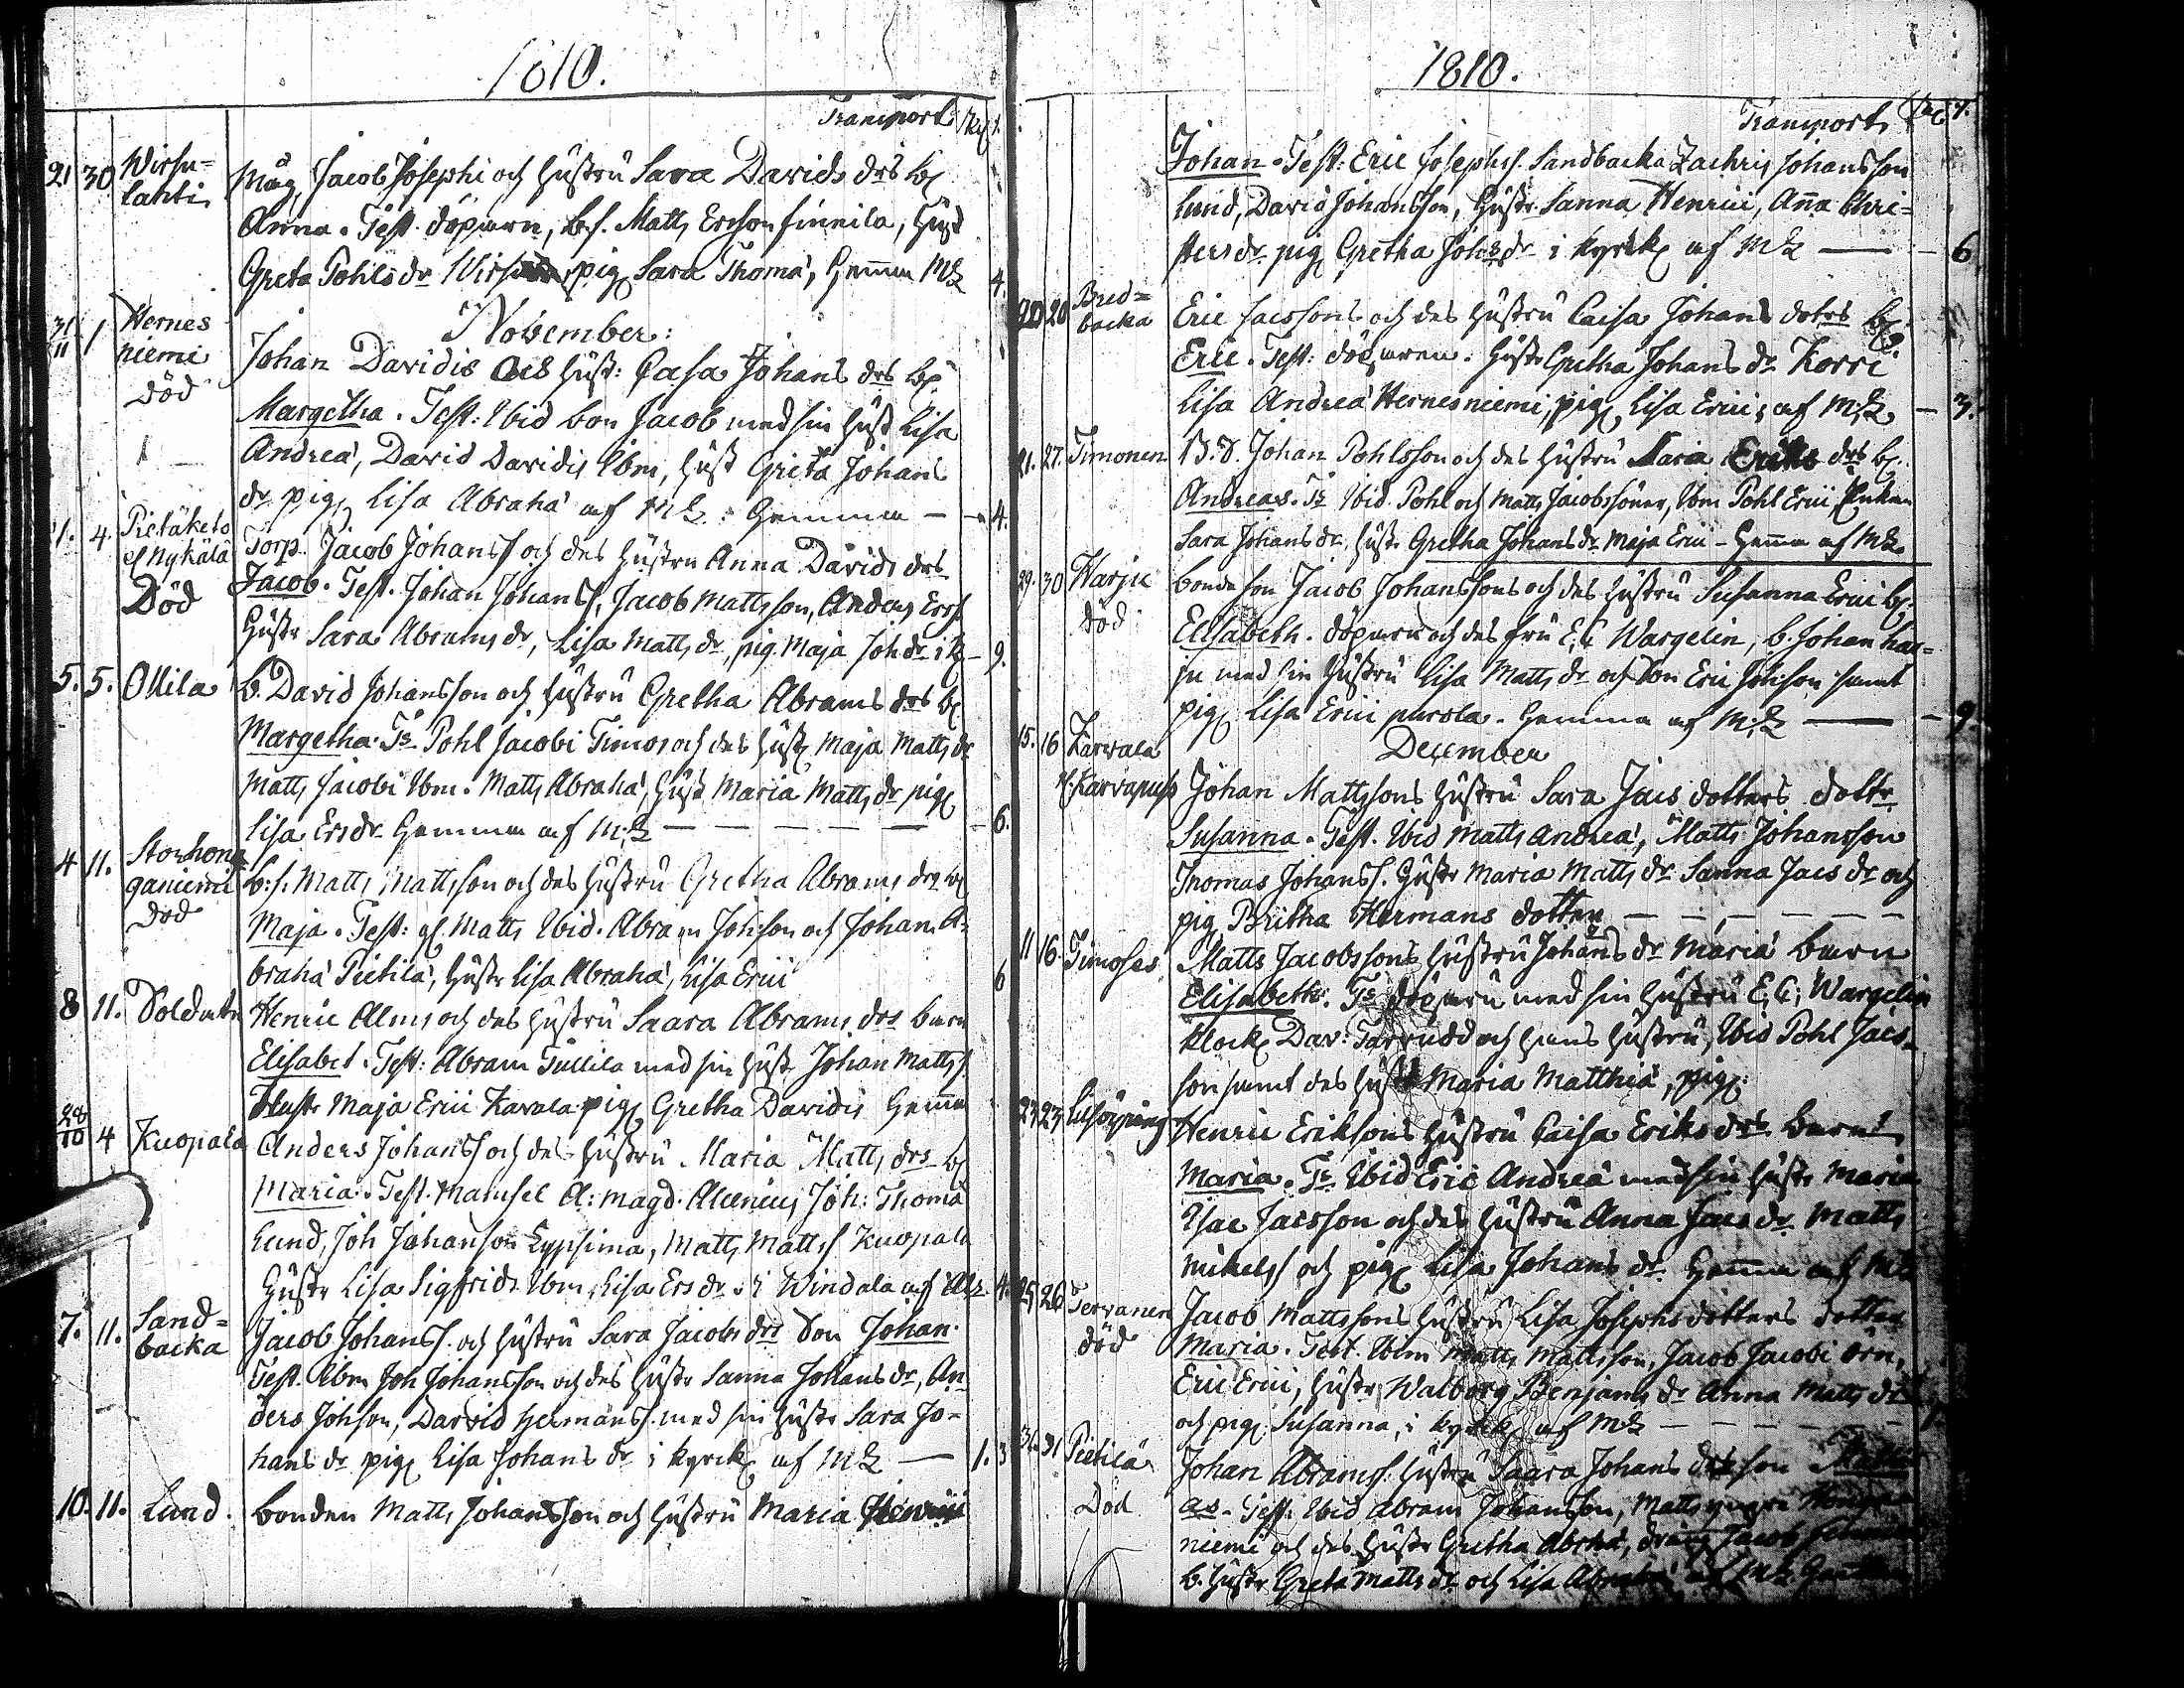 1810.
Transport
21 30 Wirsu=
lahti
Måg, Jacob Josephi och hustru Sara Davids drs
Anna. Test. döparn, b.s. Matts Ersson finnila, hust
Greta Pohlsdr pig Sara Thomæ, Hemma MZ 4.
November:
31/11 1 Hernes
niemi
död
Johan Davidis hust: Casa Johans drs
Margetha. Test: Ibid bon Jacob med sin hust Lisa
Andreæ, David Davidis Ibm, hust Greta Johans
dr pig Lisa Abrahæ af MZ: Hemma — 4.
1. 4. Pietäketo
Nykälä
Död
Torp. Jacob Johanss och des hustru Anna Davids drs
Jacob. Test. Johan Johanss, Jacob Mattsson, Anders Erss
hustr Sara Abrams dr, Lisa Matts dr, pig. Maja Joh dr 9.
5. 5. Ollila
b. David Johansson och hustru Gretha Abrams drs
Margetha. Ts Pohl Jacobi Timos och des hust Maja Matts dr
Matts Jacobi Ibm. Matts Abrahæ, hust Maria Matts dr pig
Lisa Ersdr. Hemma af M:Z — 6.
4 11. Storhon
ganiemi
död
b:s. Matts Mattsson och des hustru Gretha Abrams drs
Maja. Test: Matts Ibid. Abram Johson och Johan A=
brahæ Pietilä, hustr Lisa Abrahæ, Lisa Erici 6
8 11. Soldaten
Henric Alm och des hustru Saara Abrams drs barn
Elisabet. Test: Abram Tullila med sin hustr Johan Matts s
Hustr Maja Erici Karala pig Gretha Davidis Hema
28/10 4 Kuopala
Anders Johanss och des hustru Maria Matts drs
Maria. Test. Mamsel A: Magd. Alcenius Joh: Thomæ
Lund, Joh Johanson Lypsima, Matts Matts s Kuopala
Hustr Lisa Sigfrids Ibm, Lisa Ersdr i Windala af 4.
7. 11. Sand=
backa
Jacob Johanss. och hustru Sara Jacobs drs Son Johan.
Test. Ibm Joh Johansson och des hustr Sanna Johans dr, An
ders Johson, David Hermans s. med sin hustr Sara Jo=
hans dr pig Lisa Johans dr i kyrck af MZ — 1. 3
10. 11. Lund.
bonden Matts Johansson och hustru Maria Henrici
1810.
Transport
Johan. Test: Eric Josephss. Sandbacka Zachris Johansson
Lund, David Johansson, Hustr. Sanna Henrici, Anna Chri=
stersdr. pig Gretha Johsdr i kyrck af MZ — 6
20 20 Bred=
backa
Eric Jacssons och des hustru Caisa Johans dotrs
Eric. Test: döparen. hustr Gretha Johans dr Korri
Lisa Andreæ Hernesniemi, pig Lisa Erici, af MZ — 3.
21. 27. Timonen
B.d. Johan Pohlsson och des hustru Maria Eriks drs
Andreas. Ts Ibid. Pohl och Matts Jacobssöner, Ibm Pohl Erici, Enkan
Sara Johans dr, hustr Gretha Johans dr Maja Erici - Hema af MZ
29. 30 Harju
död
bonde son Jacob Johanssons och des hustru Susanna Erici
Elisabeth. döparn och des fru E: C Wargelin, b. Johan har=
ju med sin hustru Lisa Matts dr och Son Eric Johson samt
pig Lisa Erici purola. Hemma af M:Z — 9.
December
15. 16 Karvala
Johan Mattssons hustru Sara Jacs dotters doltr
Susanna. Test. Ibid Matts Andreæ, Matts Johansson
Thomas Johanss. hustr Maria Matts dr Sanna Jacs dr och
pig Britha Hermans dotter
11 16 Timoses
Matts Jacobssons hustru Johans dr Maria barn
Elisabeth. Ts döparn med sin hustru E, C, Wargelin
klock Dav: Tarrudd och hans hustru, Ibid Pohl Jacs=
son samt des hust Maria Matthiæ, pig.
23 23
Henric Erikssons hustru Caisa Eriks drs Barn
Maria. Ts. Ibid Eric Andreæ med sin hustr Maria
Isac Jacsson och des hustru Anna Jacs dr. Matts
Mikelss och pig Lisa Johans dr. Hemma af MZ
25 26 Tervanen
död
Jacob Mattssons hustru Lisa Josephs dotters dotter
Maria. Test. Ibm Matts Mattsson, Jacob Jacobi Örn,
Eric Erici, hustr, Walborg Benjams dr Anna Matts dr
och pig Susanna, i kyrck af MZ
31 Pietilä
Död
Johan Abramss. hustru Saara Johans drs son Matti
as. Test: Ibid Abram Johansson, Matts yngre
niemi och des hustr Gretha Abrhæ, dräng Jacob
b. hustr Greta Matts dr och Lisa Abrahæ af MZ